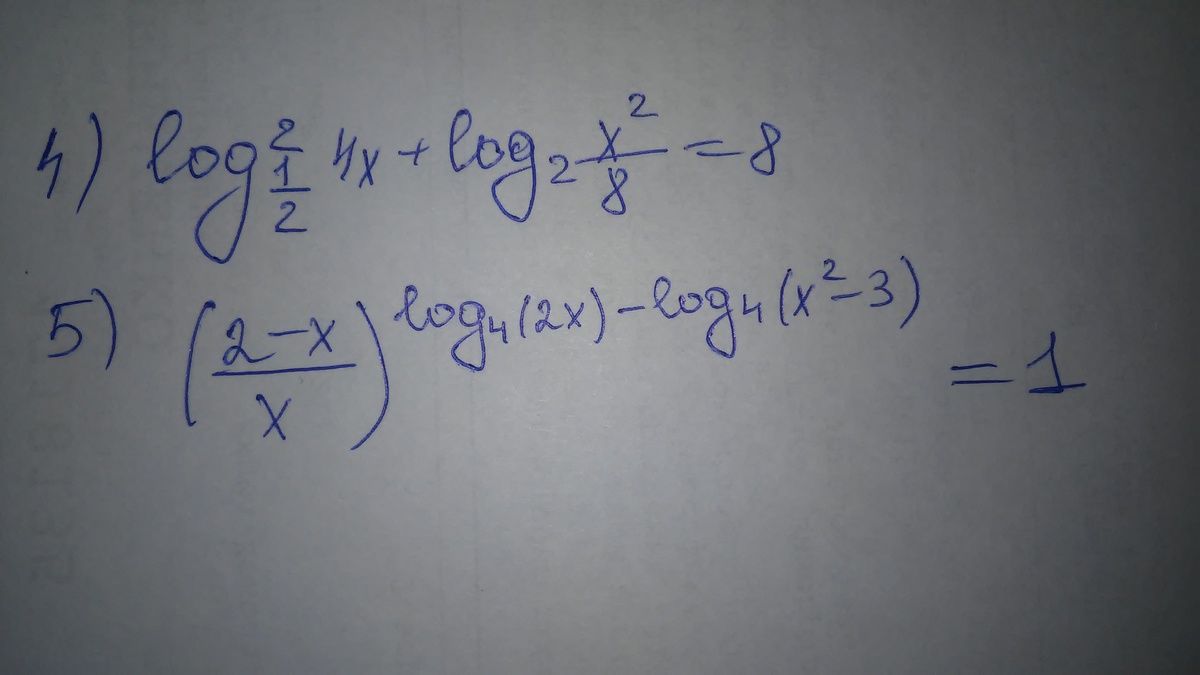 4) log²_{1/2} 4x + log₂ x²/8 = 8
5) ((2-x)/x)^{log₄(2x) - log₄(x²-3)} = 1